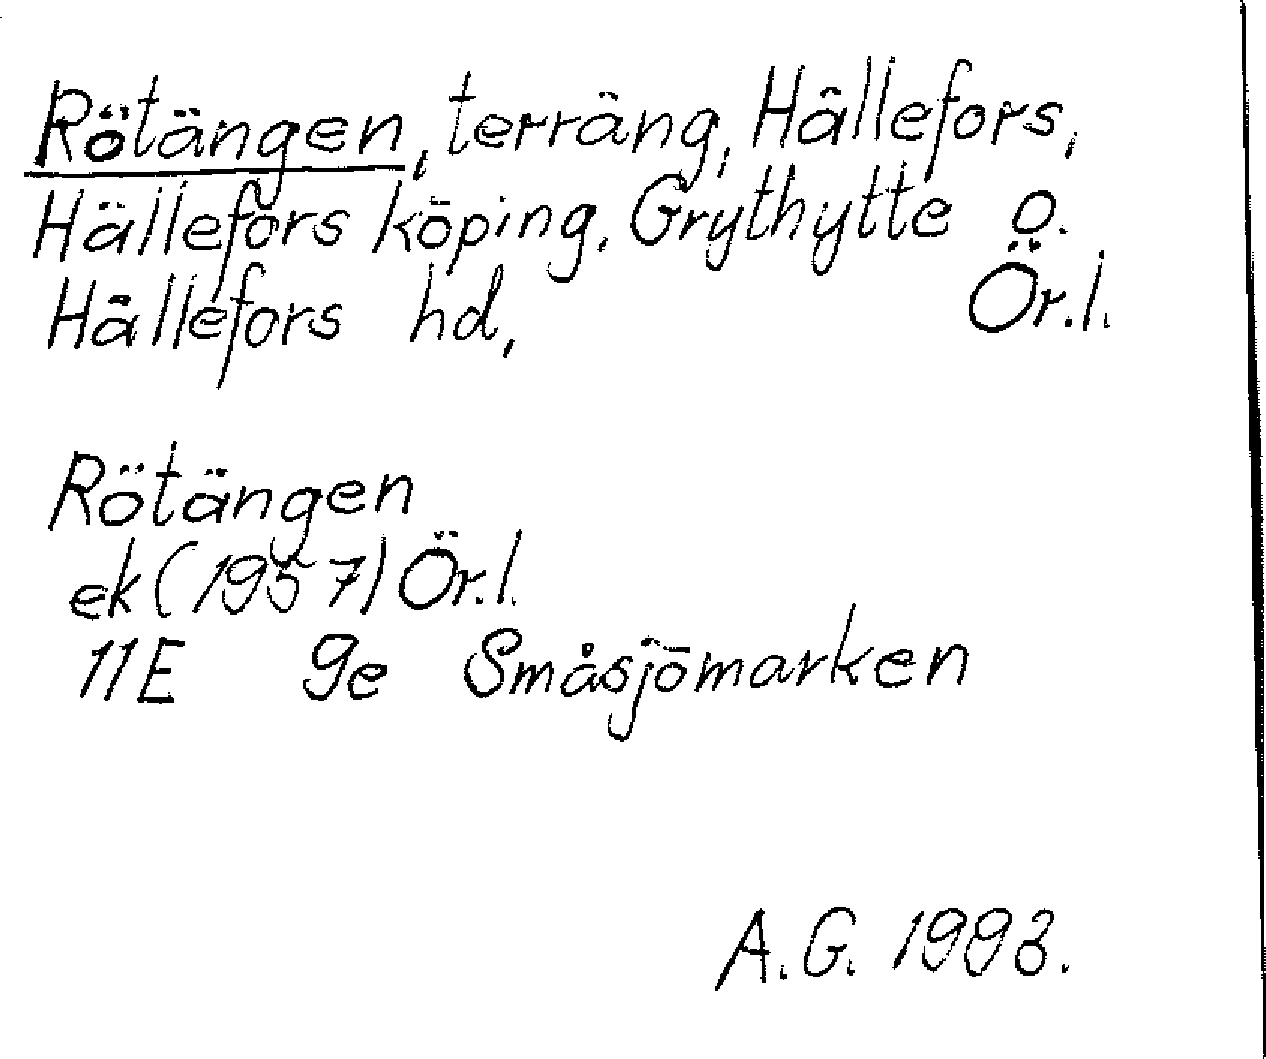 Rötängen, terräng, Hällefors,
Hällefors köping, Grythytte o.
Hällefors hd, Ör.l.
Rötängen
ek (1957) Ör.l.
11E 9e Småsjömarken
A.G. 1993.